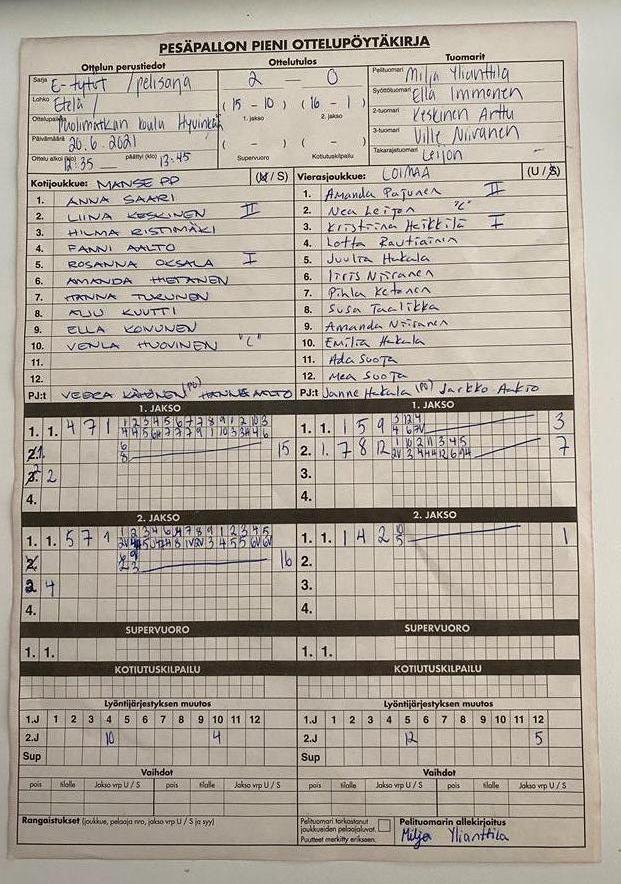 PESÄPALLON PIENI OTTELUPÖYTÄKIRJA
Ottelun perustiedot Ottelutulos Tuomarit
Sarja E-tytöt / pelisarja 2 — 0 Pelituomari Milja Ylianttila
Lohko Etelä / (15 - 10) (16 - 1) Syöttötuomari Ella Immonen
Ottelupaikka Puolimatkan koulu Hyvinkää 1. jakso 2. jakso 2-tuomari Keskinen Arttu
Päivämäärä 20.6.2021 ( - ) ( - ) 3-tuomari Ville Niiranen
Ottelu alkoi (klo) 12:35 päättyi (klo) 13:45 Supervuoro Kotiutuskilpailu Takarajatuomari Leijon –
Kotijoukkue: MANSE PP (U / S) Vierasjoukkue: LOIMAA (U / S)
1. ANNA SAARI 1. Amanda Pajunen II
2. LIINA KESKINEN II 2. Nea Leijon "C"
3. HILMA RISTIMÄKI 3. Kristiina Heikkilä I
4. FANNI AALTO 4. Lotta Rautiainen
5. ROSANNA OKSALA I 5. Juulia Hakala
6. AMANDA HIETANEN 6. Iiris Niiranen
7. HANNA TURUNEN 7. Pihla Ketonen
8. AIJU KUUTTI 8. Susa Taalikka
9. ELLA KONUNEN 9. Amanda Niiranen
10. VENLA HUOVINEN "C" 10. Emilia Hakala
11. 11. Ada Suoja
12. 12. Mea Suoja
PJ:t VEERA KÄHÖNEN (PJ) HANNE AALTO PJ:t Janne Hakula (PJ) Jarkko Aukio
1. JAKSO 1. JAKSO
1. 1. 4 7 1 1. 1. 1 5 9 3
2. 1. 15 2. 1. 7 8 12 7
3. 2 3.
4. 4.
2. JAKSO 2. JAKSO
1. 1. 5 7 1 1. 1. 1 4 2 10 5 1
2. 16 2.
2 4 3.
4. 4.
SUPERVUORO SUPERVUORO
1. 1. 1. 1.
KOTIUTUSKILPAILU KOTIUTUSKILPAILU
Lyöntijärjestyksen muutos Lyöntijärjestyksen muutos
1.J 1 2 3 4 5 6 7 8 9 10 11 12 1.J 1 2 3 4 5 6 7 8 9 10 11 12
2.J 10 4 2.J 12 5
Sup Sup
Vaihdot Vaihdot
pois tilalle Jakso vrp U / S pois tilalle Jakso vrp U / S pois tilalle Jakso vrp U / S pois tilalle Jakso vrp U / S
Rangaistukset (joukkue, pelaaja nro, jakso vrp U / S ja syy) Pelituomari tarkastanut Pelituomarin allekirjoitus
joukkueiden pelaajaluvat.
Puutteet merkitty erikseen. Milja Ylianttila